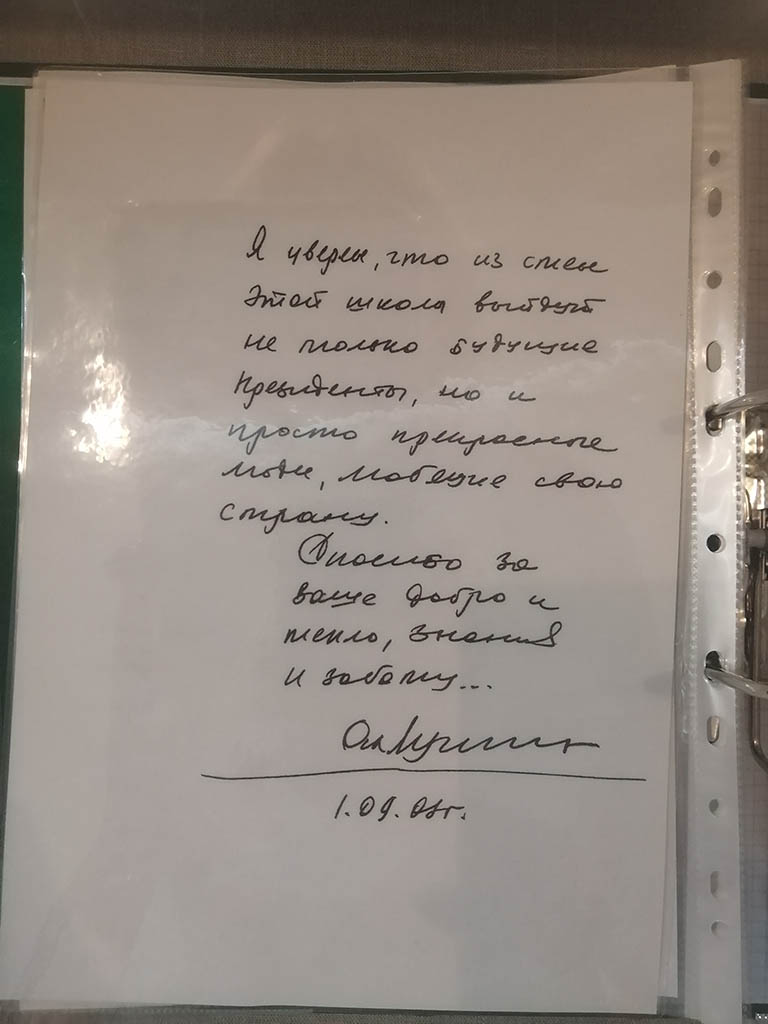 Я уверен, что из стен
этой школы выйдут
не только будущие
Президенты, но и
просто прекрасные
люди, любящие свою
страну.
Спасибо за
ваше добро и
тепло, знания
и заботу...
1.09.